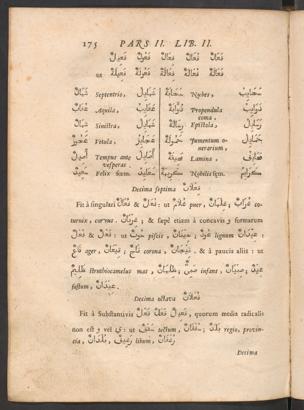 175 PARS II. LIB. II.
فَعَالٌ فِعَالٌ فُعَالٌ فَعُولٌ فَعِيلٌ
ut فَعَالَةٌ فِعَالَةٌ فُعَالَةٌ فَعُولَةٌ فَعِيلَةٌ
شَمَالٌ Septentrio, شَمَايِلُ سَحَابَةٌ Nubes, سَحَايِبُ
عُقَابٌ Aquila, عَقَايِبُ ذُوَابَةٌ Propendula coma. ذَوَايِبُ
شِمَالٌ Sinistra, شَمَايِلُ رِسَالَةٌ Epistola, رَسَايِلُ
عَجُوزٌ Vetula, عَجَايِزُ حَمُولَةٌ Jumentum onerarium, حَمَايِلُ
أَصِيلٌ Tempus ante vesperas. أَصَايِلُ Lamina,
Felix fœm. كَرِيمَةٌ Nobilis fœm. كَرَايِمُ
Decima septima فِعْلَانٌ
Fit à singulari فُعَالٌ & فَعَالٌ : ut غُلَامٌ puer, غِلْمَانٌ ; غُرَابٌ co-
turnix, corvus. غِرْبَانٌ ; & sæpè etiam à concavis 3 formarum
فُعْلٌ & فَعَلٌ : ut حُوتٌ piscis, حِيتَانٌ , عُودٌ lignum عِيدَانٌ ;
قَاعٌ ager, قِيعَانٌ , تَاجٌ corona, تِيجَانٌ , & à paucis aliis: ut
ظَلِيمٌ struthiocamelus mas, ظِلْمَانٌ , صَبِيٌّ infans, صِبْيَانٌ , عِيدٌ
festum, عِيدَانٌ.
Decima octava فُعْلَانٌ
Fit à Substantivis فَعِيلٌ فَعَلٌ فَعْلٌ , quorum media radicalis
non est و vel ي : ut سَقْفٌ tectum, سُقْفَانٌ , بَلَدٌ regio, provin-
cia, بُلْدَانٌ , رَغِيفٌ libum, رُغْفَانٌ
Decima